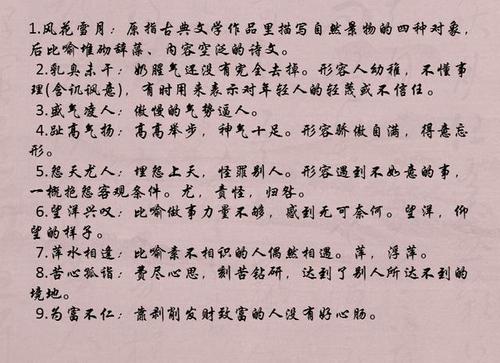 1.风花雪月：原指古典文学作品里描写自然景物的四种对象，
后比喻堆砌辞藻、内容空泛的诗文。
2.乳臭未干：奶腥气还没有完全去掉。形容人幼稚，不懂事
理(含讥讽意)，有时用来表示对年轻人的轻蔑或不信任。
3.盛气凌人：傲慢的气势逼人。
4.趾高气扬：高高举步，神气十足。形容骄傲自满，得意忘
形。
5.怨天尤人：埋怨上天，怪罪别人。形容遇到不如意的事，
一概抱怨客观条件。尤，责怪，归咎。
6.望洋兴叹：比喻做事力量不够，感到无可奈何。望洋，仰
望的样子。
7.萍水相逢：比喻素不相识的人偶然相遇。萍，浮萍。
8.苦心孤诣：费尽心思，刻苦钻研，达到了别人所达不到的
境地。
9.为富不仁：靠剥削发财致富的人没有好心肠。